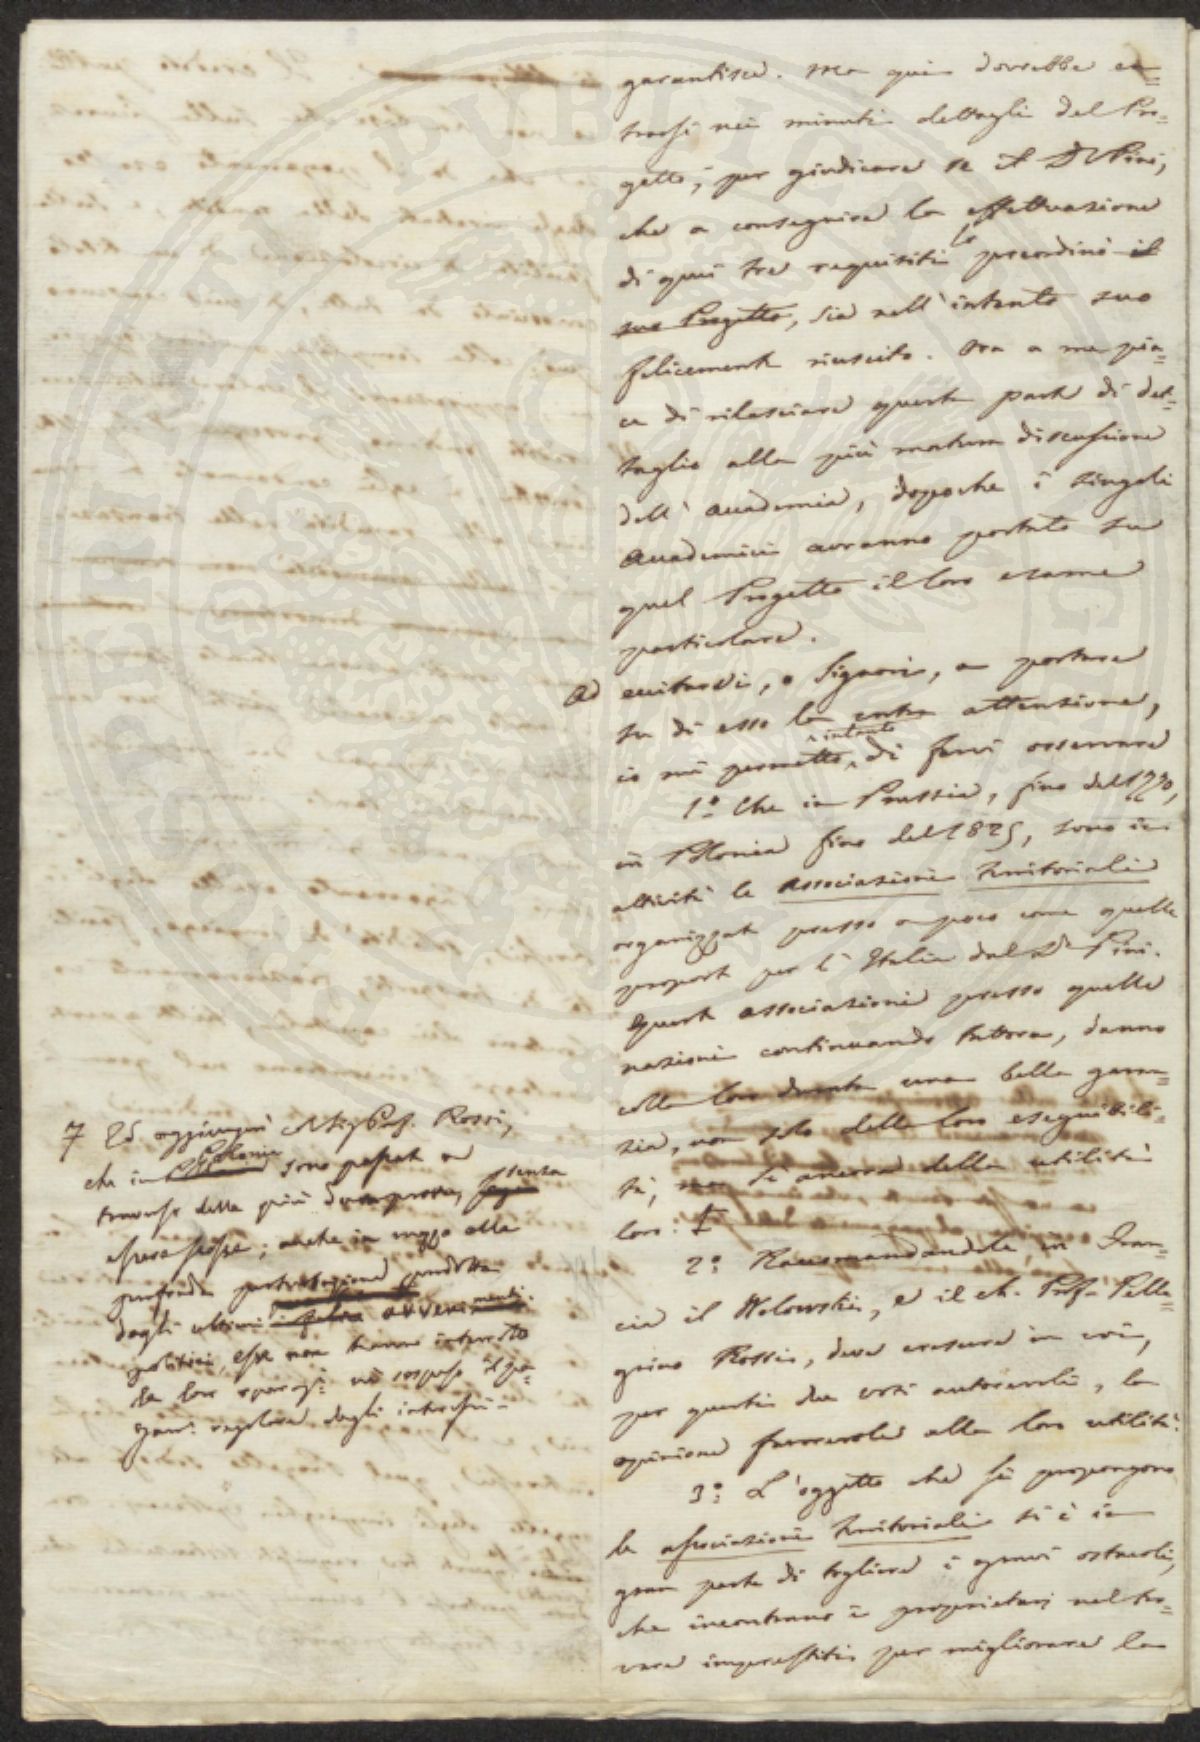 garantisce. Ma quì dovrebbe en=
trarsi nei minuti dettagli del Pro=
getto, per giudicare se il Dr Pini,
che a conseguire la effettuazione
di quei tre requisiti lo preordinò il
suo Progetto, sia nell'intento suo
felicemente riuscito. Ora a me pia=
ce di rilasciare questa parte di det=
taglio alla più matura discussione
dell'Accademia, dopoche i singoli
Accademici avranno portato su
quel Progetto il loro esame
particolare.
Ad eccitarvi, o Signori, a portare
su di esso la vostra attenzione,
io mi permetto intanto di farvi osservare
1.º Che in Prussia, fino dal 1770,
in Polonia fino dal 1825, sono in
attività le Associazioni Territoriali
organizzate presso a poco come quelle
proposte per l'Italia dal Dr Pini.
Queste associazioni presso quelle
nazioni continuando tuttora, danno
colla loro durata una bella garan=
zia, non solo della loro eseguibili=
tà, ma sì ancora della utilità
loro:
2.º Raccomandandole in Fran=
cia il Wolowski, e il ch. Prof. Pelle=
grino Rossi, deve crescere in voi,
per questi due voti autorevoli, la
opinione favorevole alla loro utilità.
3.º L'oggetto che si propongono
le associazioni territoriali si è in
gran parte di togliere i gravi ostacoli,
che incontrano i proprietarj nel tro=
vare imprestiti per migliorare la
Ed aggiungerò Prof. Rossi,
che in Polonia sono passate a
traverso delle più dure prove, senza
; anche in mezzo alla
profonda perturbazione prodotta
dagli ultimi avvenimenti
politici, esse non hanno interrotto
le loro nè sospeso il pa=
gam: regolare degli interessi.